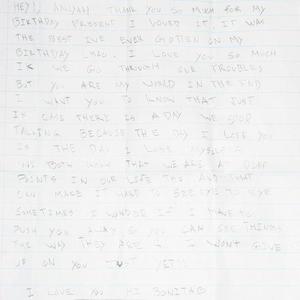 HEY! ANIYAH THANK YOU SO MUCH FOR MY
BIRTHDAY PRESENT I LOVED IT. IT WAS
THE BEST IVE EVER GOTTEN ON MY
BIRTHDAY LMAO. I LOVE YOU SO MUCH
IK WE GO THROUGH OUR TROUBLES
BUT YOU ARE MY WORLD IN THE END
I WANT YOU TO KNOW THAT JUST
IN CASE THERE IS A DAY WE STOP
TALKING BECAUSE THE DAY I LOSE YOU
IS THE DAY I LOSE MYSELF.
WE BOTH KNOW THAT WE ARE AT DIFF
POINTS IN OUR LIFE THO AND THAT
CAN MAKE IT HARD TO SEE EYE TO EYE
SOMETIMES I WONDER IF I HAVE TO
PUSH YOU AWAY SO YOU CAN SEE THINGS
THE WAY THEY ARE I WONT GIVE
UP ON YOU JUST YET!!
I LOVE YOU MI BONITA